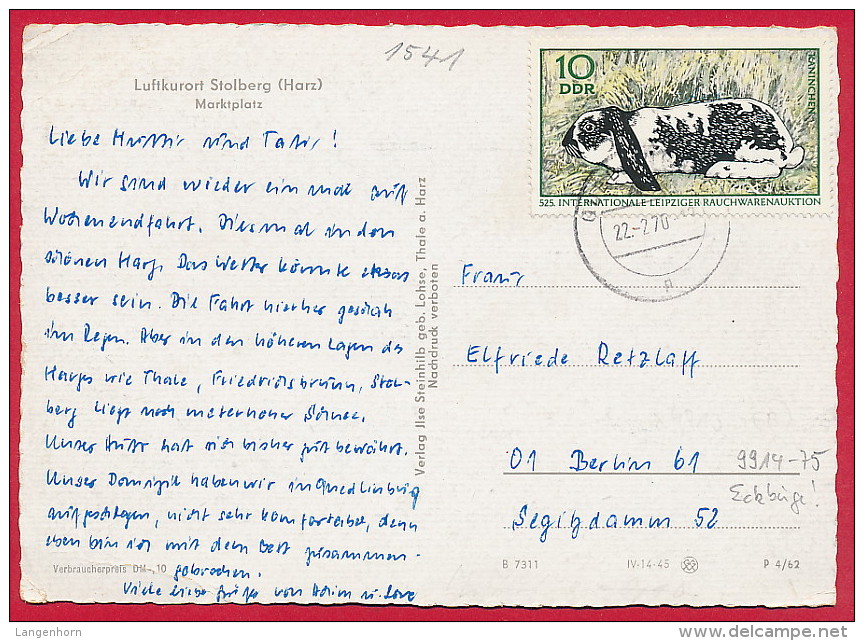 1541
Luftkurort Stolberg (Harz)
Marktplatz
Liebe Mutti und Tati!
Wir sind wieder einmal auf
Wochenendfahrt. Diesmal in den
schönen Harz. Das Wetter könnte etwas
besser sein. Die Fahrt hierher geschah
im Regen. Aber in den höheren Lagen des
Harzes wie Thale, Friedrichsbrunn, Stol-
berg liegt noch meterhoher Schnee.
Unser Auto hat sich bisher gut bewährt.
Unser Domizil haben wir in Quedlinburg
aufgeschlagen, nicht sehr komfortabel, denn
eben bin ich mit dem Bett zusammen-
gebrochen.
Viele liebe Grüße von Achim u.
Verbraucherpreis DM -,10
Verlag Ilse Steinhilb geb. Lohse, Thale a. Harz
Nachdruck verboten
10
DDR
KANINCHEN
525. INTERNATIONALE LEIPZIGER RAUCHWARENAUKTION
22.-2.70
Frau
Elfriede Retzlaff
01 Berlin 61
9914-75
Segitzdamm 52
B 7311
IV-14-45
P 4/62
Langenhorn
delcampe.net